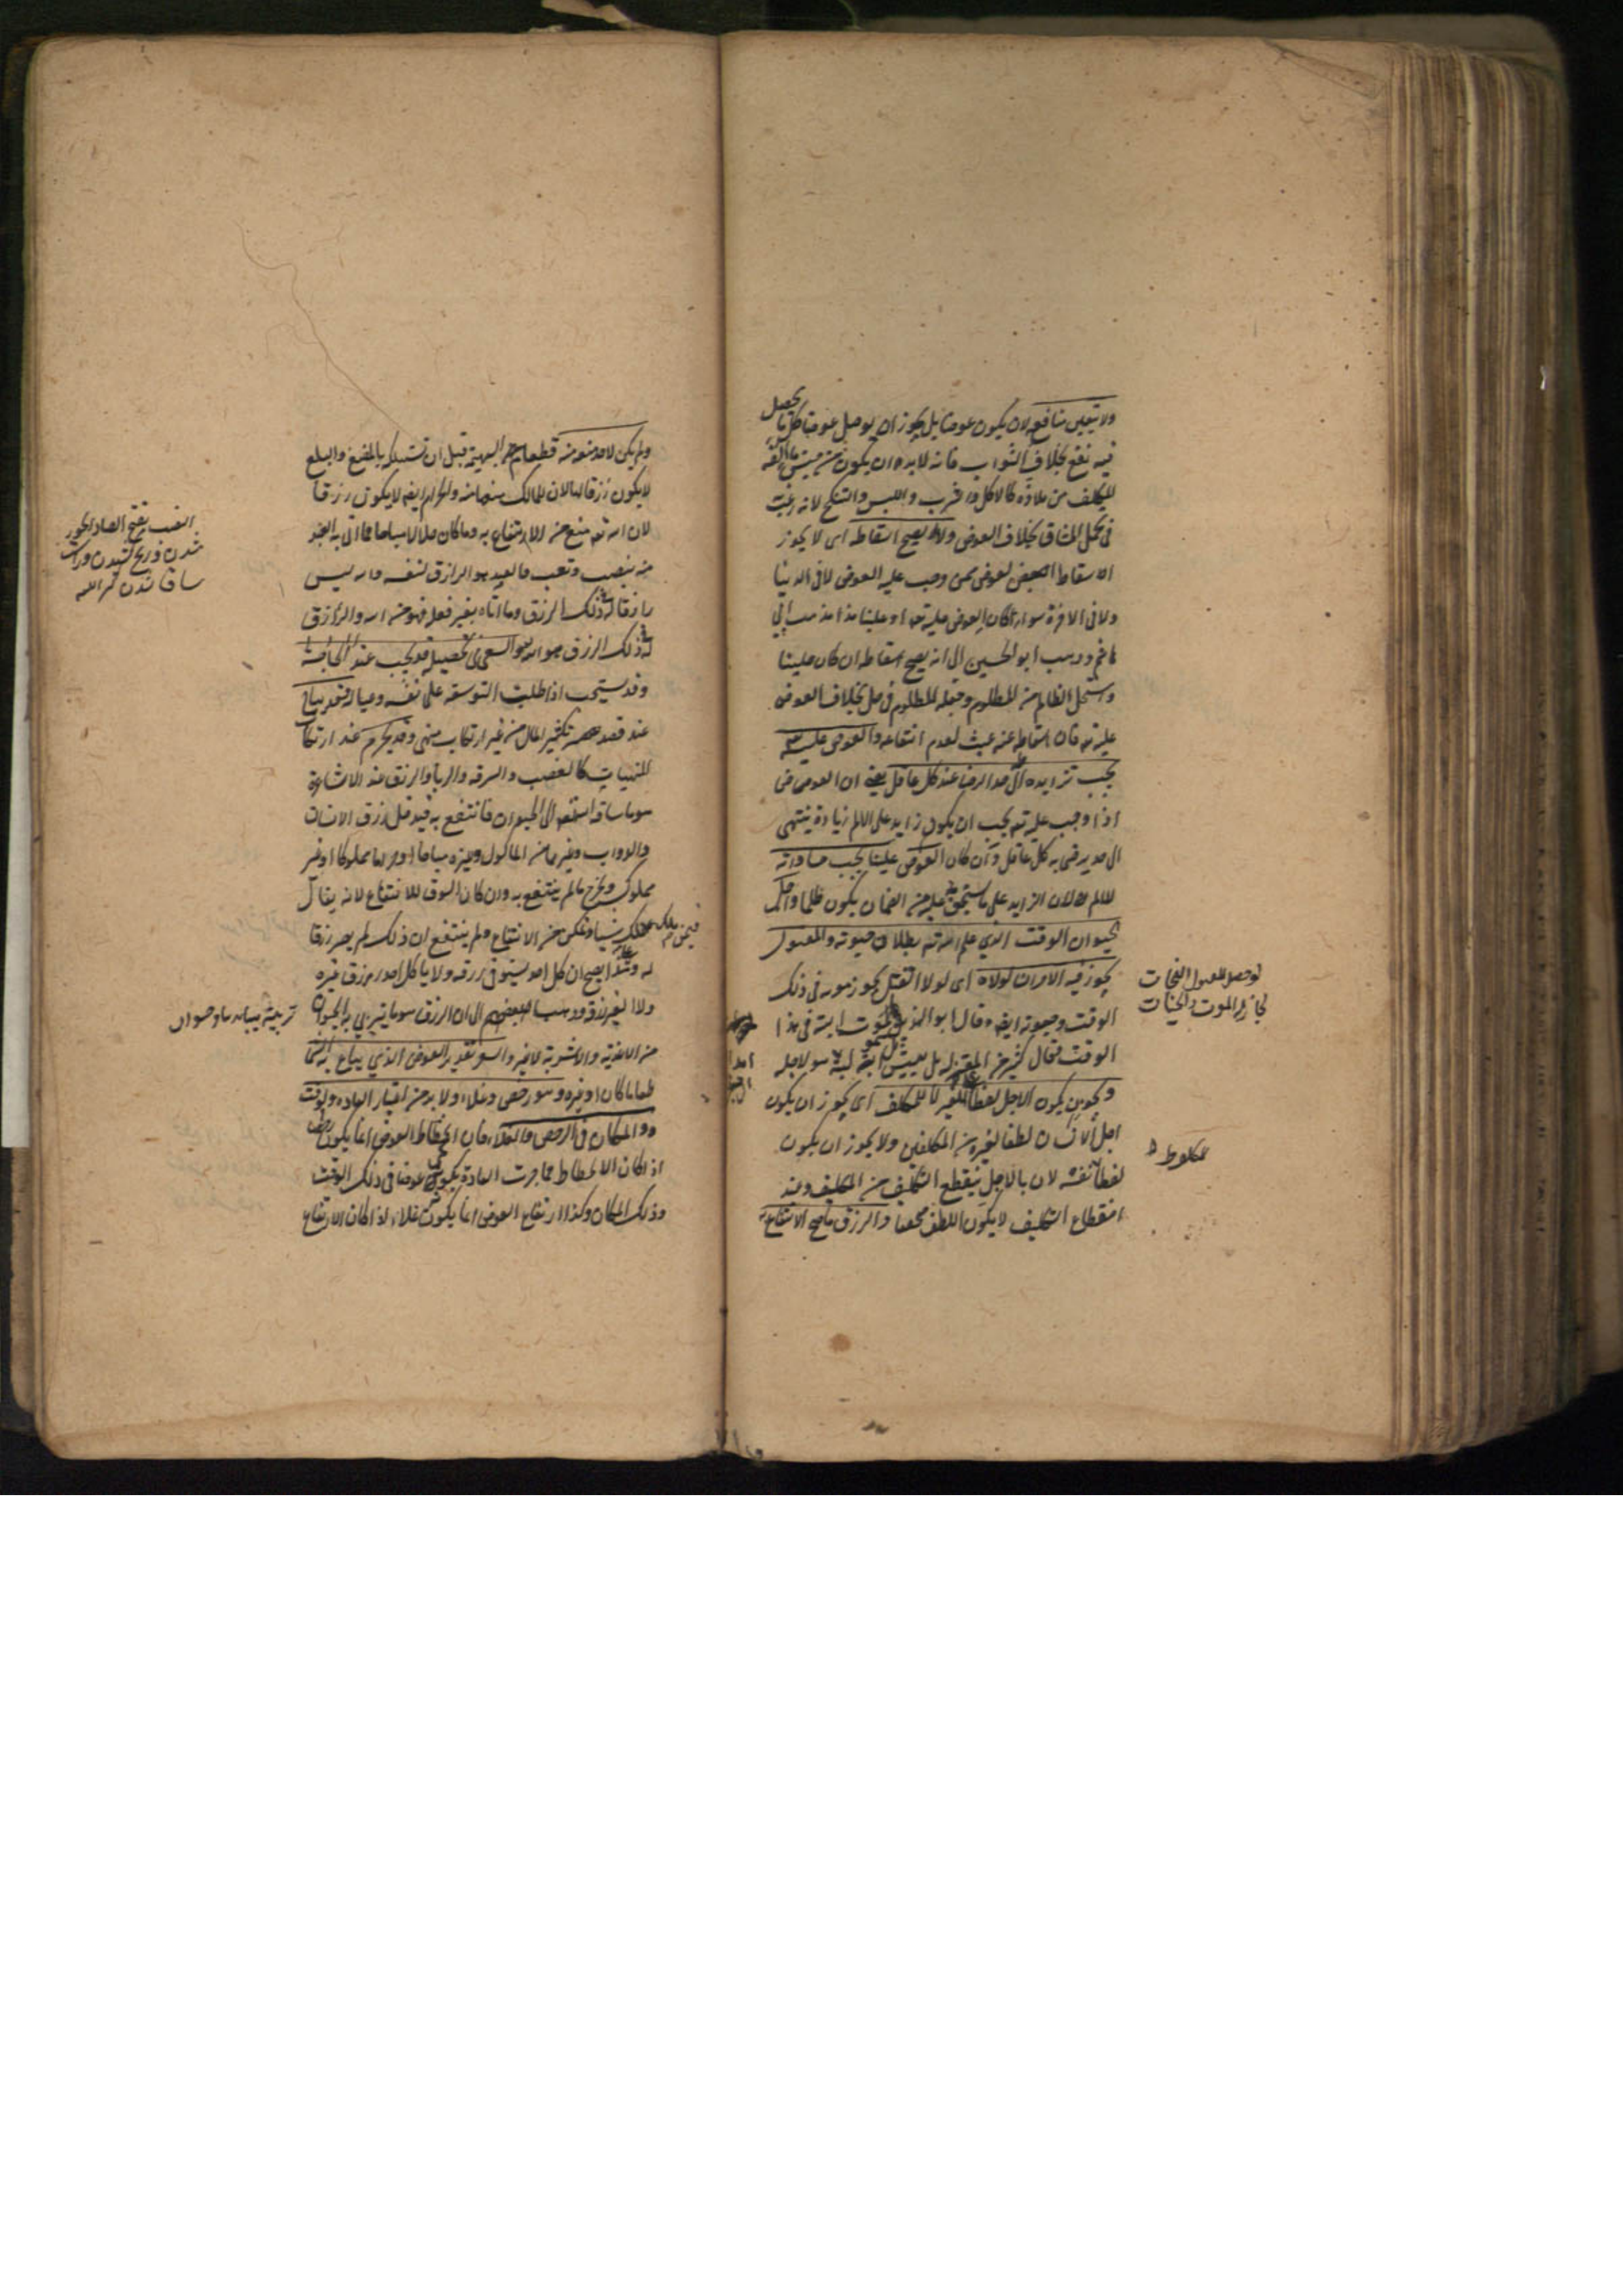 ولا يتعين منافعه لان يكون عوضا بل يجوز ان يوصل عوضا كل ما يحصل
فيه نفع بخلاف الثواب فانه لابد وان يكون من جنس ما الفه
المكلف من ملاذه كالاكل والشرب واللبس والنكح لانه رغبه
فى تحمل المشاق بخلاف العوض ولا يصح اسقاطه اى لا يجوز
اسقاط العوض ممن وجب عليه العوض لا فى الدنيا
ولا فى الاخرة سواء كان العوض عليه تعم او علينا هذا مذهب ابى
هاشم وذهب ابو الحسين الى انه يصح اسقاطه ان كان علينا
واستحل الظالم من المظلوم وجعله المظلوم فى حل بخلاف العوض
عليه تعم فان اسقاطه عنه عبث لعدم انتفاعه والعوض عليه تعم
يجب تزايده الى حد الرضا عند كل عاقل يعنى ان العوض
اذا وجب عليه تعم يجب ان يكون زايد على الالم زيادة ينتهى
الى حد يرضى به كل عاقل وان كان العوض علينا يجب مساواته
للالم لان الزايد على ما يستحق عليه من الضمان يكون ظلما واجل
الحيوان الوقت الذى علم الله تعم بطلان حيوته والمقتول
يجوز فيه الامران لولاه اى لولا القتل يجوز موته فى ذلك
الوقت وحيوته ايضا وقال ابو الهذيل يموت البتة فى هذا
الوقت وقال كثير من المعتزلة بل يعيش البتة الى هو اجله
ويجوز ان يكون الاجل لطفا للغير لا للمكلف اى يجوز ان يكون
اجل الانسان لطفا لغيره من المكلفين ولا يجوز ان يكون
لطفا لنفسه لان بالاجل ينقطع التكليف من المكلف وعند
انقطاع التكليف لا يكون اللطف محققا والرزق ما صح الانتفاع به
لو حصل للمقتول النجات
لجاز له الموت والحيات
ولم يكن لاحد منعه منه قطعام البهيمة قبل ان تستهلكه بالمضغ والبلع
لا يكون رزقا لها لان للمالك منعها منه والحرام ايضا لا يكون رزقا
لان الله تعم منع من الانتفاع به وما كان حلالا مباحا مما اتى به العبد
منه بنصب وتعب فالعبد هو الرازق لنفسه والله ليس
رازقا له ذلك الرزق وما اتاه بغير فعله فهو من الله والرازق
له ذلك الرزق هو الله والسعى فى تحصيله قد يجب عند الحاجة
وقد يستحب اذا طلبت التوسعة على نفسه وعياله وقد يباح
عند قصد تكثير المال من غير ارتكاب منهى وقد يحرم عند ارتكاب
المنهيات كالغصب والسرقه والربا والرزق عند الاشاعرة
هو ما ساقه الله تعم الى الحيوان فانتفع به فيدخل رزق الانسان
والدواب وغيرها من الماكول وغيره مباحا او حراما مملوكا او غير
مملوك وخرج ما لم ينتفع به وان كان السوق للانتفاع لانه يقال
فيمن ملك شيئا وتمكن من الانتفاع ولم ينتفع ان ذلك لم يصر رزقا
له وعلى هذا يصح ان كل احد يستوفى رزقه ولا ياكل احد رزق غيره
ولا الغير رزقه وذهب بعضهم الى ان الرزق هو ما يتربى به الحيوان
من الاغذية والاشربة لا غير والسعر تقدير العوض الذى يباع به الشئ
طعاما كان او غيره وهو رخص وغلاء ولا بد من اعتبار العادة والوقت
والمكان فى الرخص والغلاء فان انحطاط العوض انما يكون رخصا
اذا كان الانحطاط مما جرت العادة بكونه عوضا فى ذلك الوقت
وذلك المكان وكذا ارتفاع العوض انما يكون غلاء اذا كان الارتفاع
النصب بفتح الصاد
شدن ورنج كشيدن
كنز اللغه